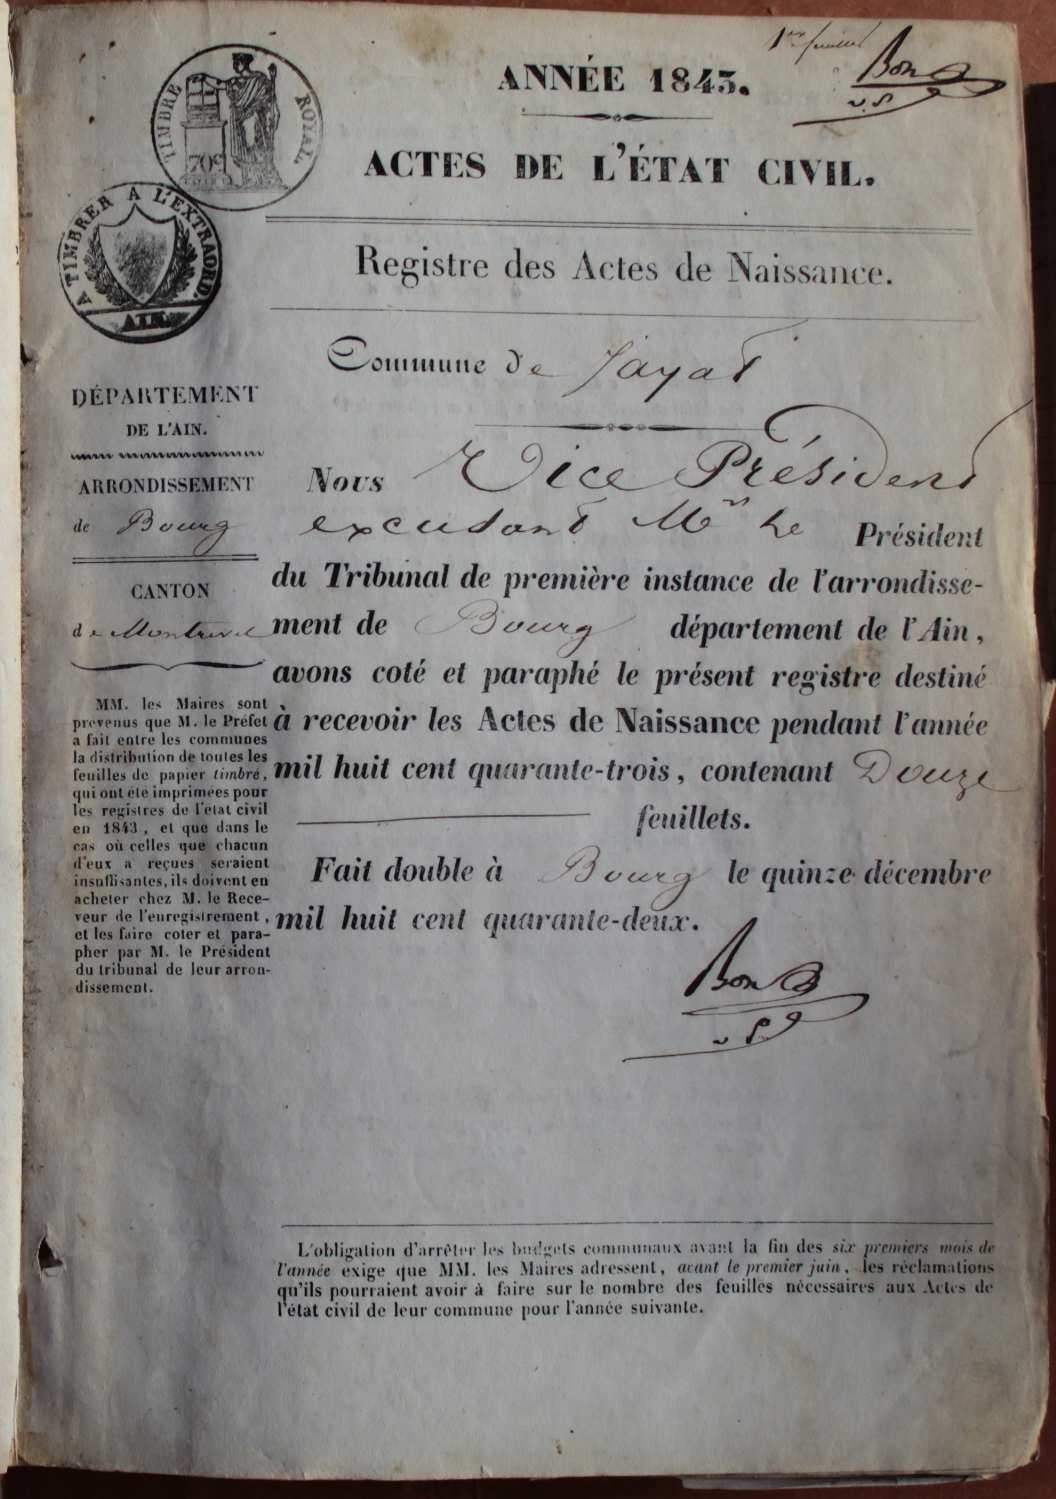 1er feuillet
Bon
v.P.
TIMBRE ROYAL
70c
A TIMBRER A L'EXTRAORD.
AIN.
ANNÉE 1843.
ACTES DE L'ÉTAT CIVIL.
Registre des Actes de Naissance.
Commune de Jayat
DÉPARTEMENT
DE L'AIN.
ARRONDISSEMENT
de Bourg
CANTON
de Montrevel
MM. les Maires sont
prévenus que M. le Préfet
a fait entre les communes
la distribution de toutes les
feuilles de papier timbré,
qui ont été imprimées pour
les registres de l'état civil
en 1843, et que dans le
cas où celles que chacun
d'eux a reçues seraient
insuffisantes, ils doivent en
acheter chez M. le Rece-
veur de l'enregistrement,
et les faire coter et para-
pher par M. le Président
du tribunal de leur arron-
dissement.
Nous Vice Président
excusant Mr le Président
du Tribunal de première instance de l'arrondisse-
ment de Bourg département de l'Ain,
avons coté et paraphé le présent registre destiné
à recevoir les Actes de Naissance pendant l'année
mil huit cent quarante-trois, contenant Douze
feuillets.
Fait double à Bourg le quinze décembre
mil huit cent quarante-deux.
Bon
v.P.
L'obligation d'arrêter les budgets communaux avant la fin des six premiers mois de
l'année exige que MM. les Maires adressent, avant le premier juin, les réclamations
qu'ils pourraient avoir à faire sur le nombre des feuilles nécessaires aux Actes de
l'état civil de leur commune pour l'année suivante.